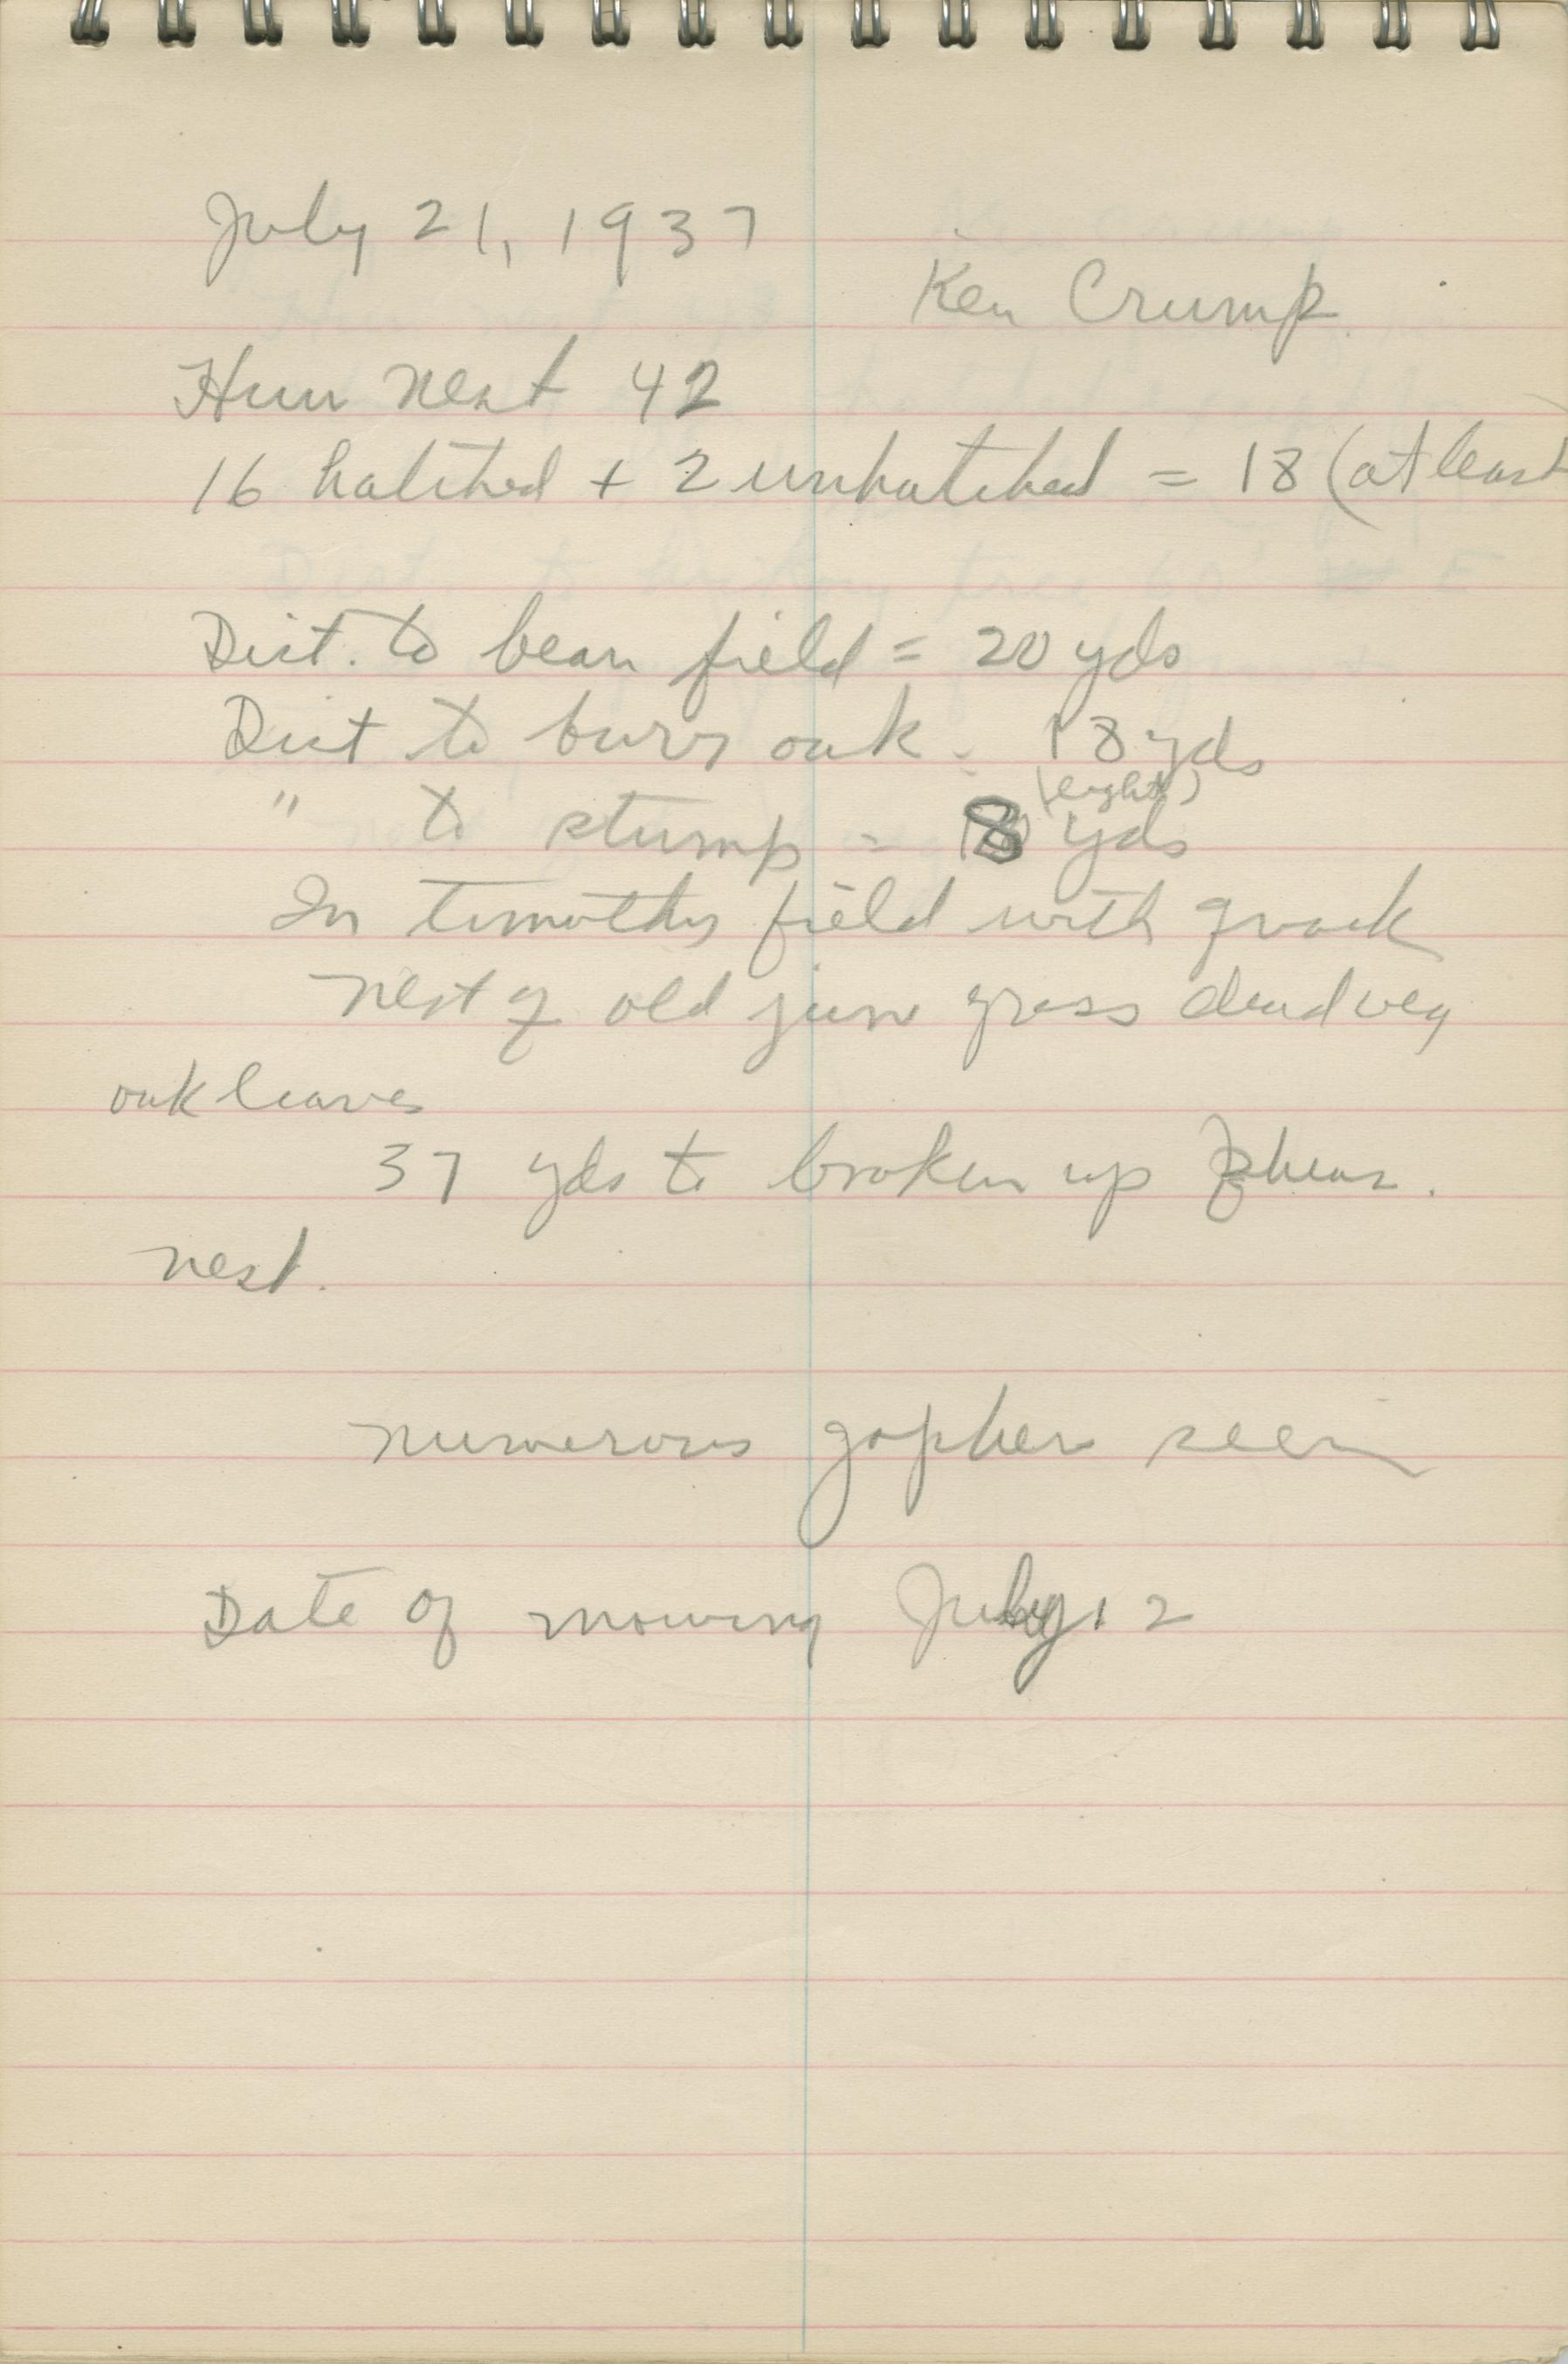 July 21, 1937
Ken Crump
Hun nest 42
16 hatched + 2 unhatched = 18 (at least
Dist. to bean field = 20 yds
Dist to burr oak - 18 yds
(eight)
" to stump = 8 yds
In timothy field with quack
nest of old june grass dead veg
oak leaves
37 yds to broken up Pheas.
nest.
numerous gophers seen
Date of mowing July 12